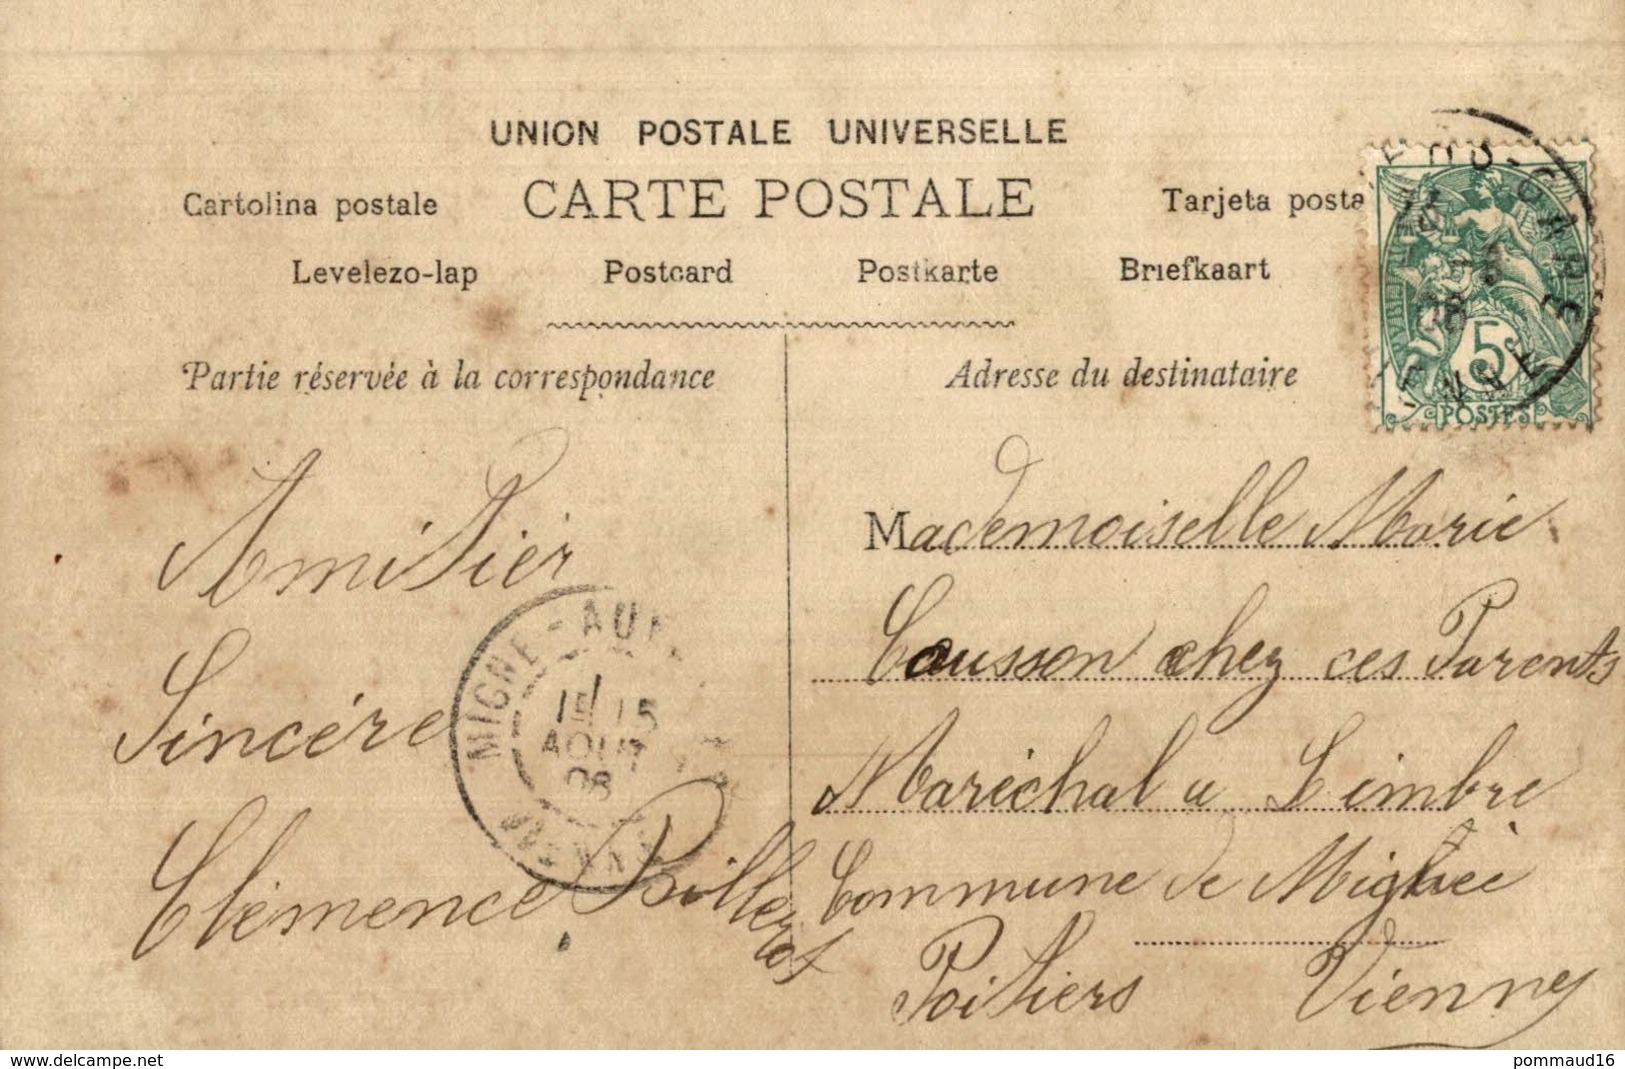 UNION POSTALE UNIVERSELLE
Cartolina postale CARTE POSTALE Tarjeta posta
Levelezo-lap Postcard Postkarte Briefkaart
Partie réservée à la correspondance
Adresse du destinataire
5c
POSTES
Amitiér
Sincére
Clémence
MIGNE-AU
15
AOUT
08
Mademoiselle Marie
Cousson chez ces Parents
Maréchal a Limbre
Commune de
Poitiers Vienne
www.delcampe.net
pommaud16